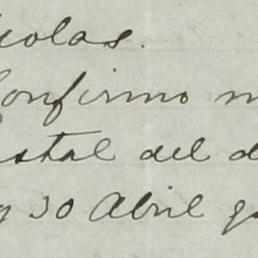 icolas.
Confirmo m
ostal del d
y 30 Abril q